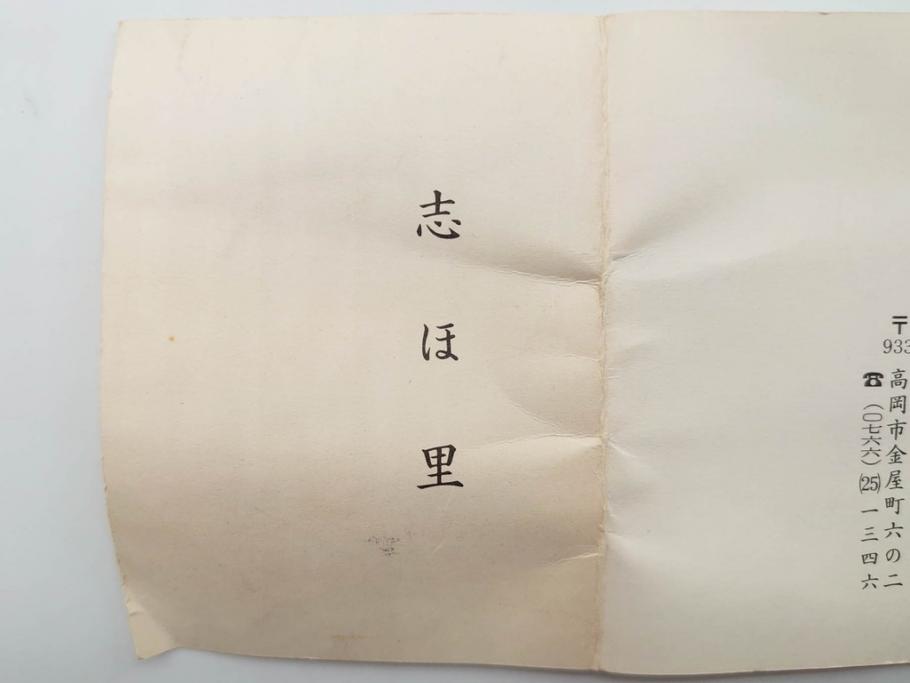 志ほ里
〒933
高岡市金屋町六の二
☎(〇七六六)(25)一三四六